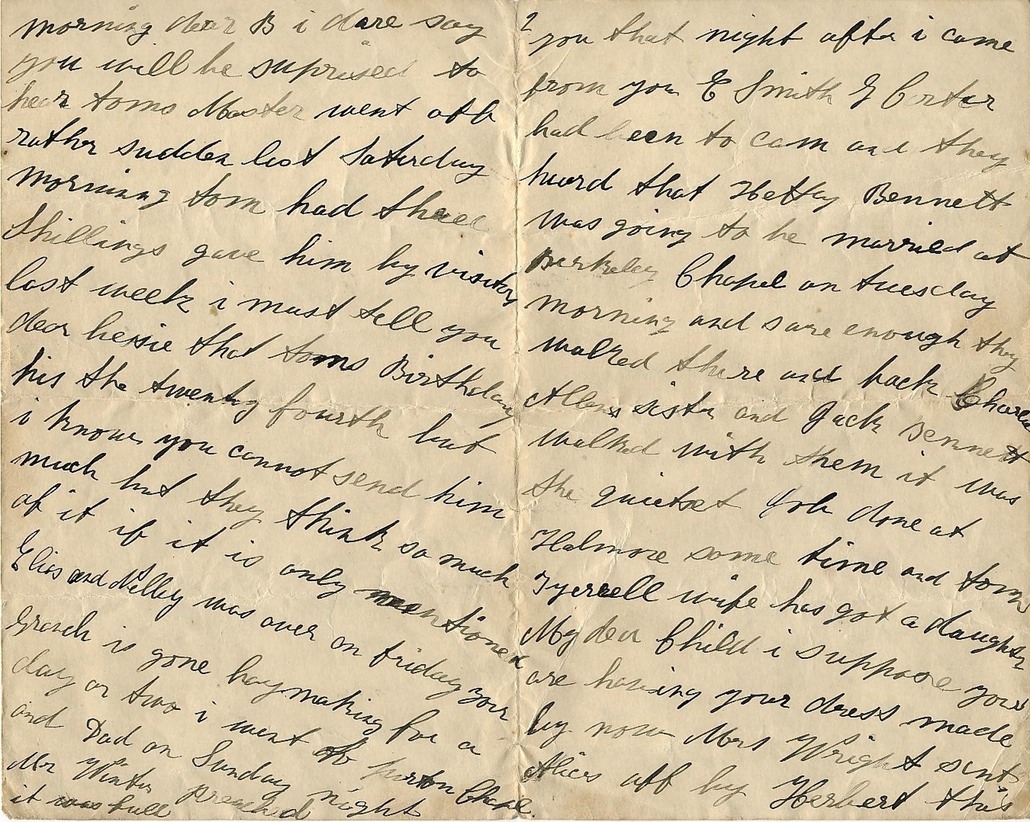 morning dear B i dare say
you will be suprised to
hear toms Master went off
rather sudden last Saterday
morning tom had three
Shillings gave him by visitors
last week i must tell you
dear hessie that toms Birthday
his the twenty fourth but
i know you cannot send him
much but they think so much
of it if it is only mentioned
and Nelley was over on friday your
is gone haymaking for a
day or two i went to purton Chapel
and Dad on Sunday night
Mr Winter preached
it was full
2
you that night after i came
from you E Smith G Carter
had been to cam and they
heard that Hetty Bennett
was going to be married at
Berkeley Chapel on tuesday
morning and sure enough they
walked there and back Charles
Allens sister and Jack Bennett
walked with them it was
the quietset Job done at
Halmore some time and tom
Tyerell wife has got a daughter
My dear Child i suppose you
are having your dress made
by now Mrs Wright sent
Alices off by Herbert this